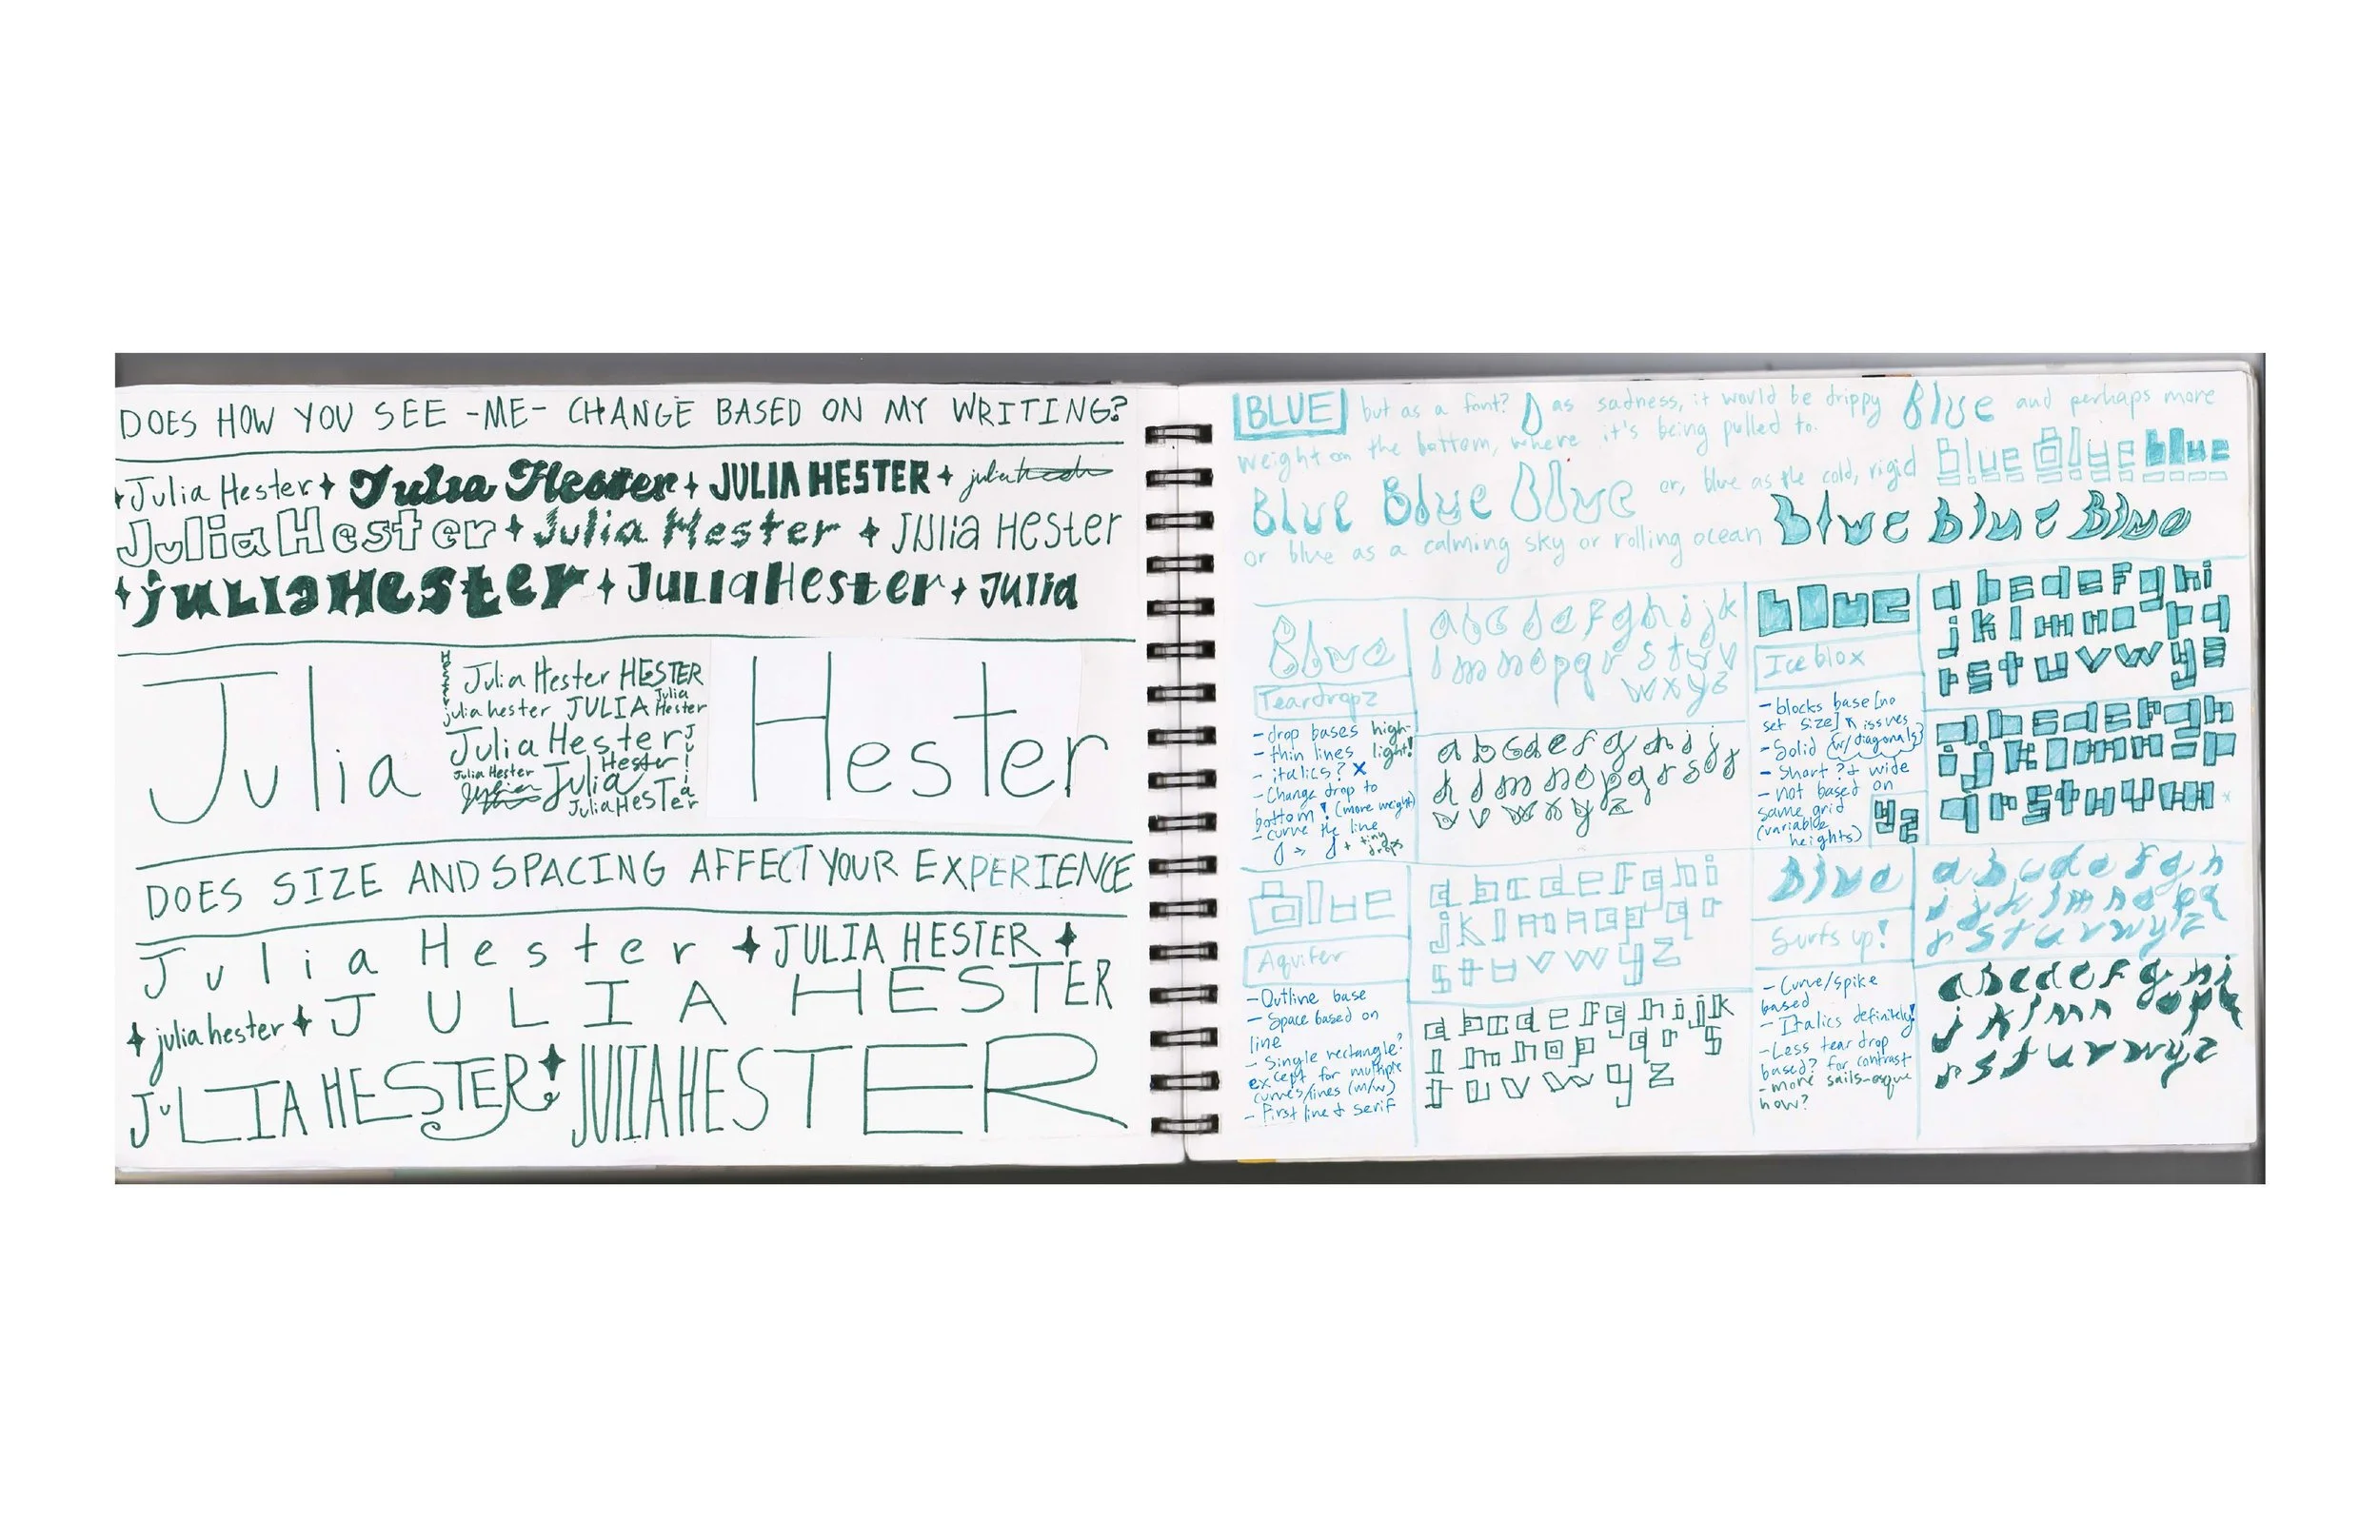 DOES HOW YOU SEE -ME- CHANGE BASED ON MY WRITING?
Julia Hester + Julia Hester + JULIA HESTER + julia
Julia Hester + Julia Hester + JUlia Hester
+ juLIaHester + JuLIaHester + Julia
Julia
Hester
Julia Hester HESTER
julia hester JULIA Julia Hester
Julia Hester
Julia
Julia Hester Julia Hester
JuliaHesTer
Hester
DOES SIZE AND SPACING AFFECT YOUR EXPERIENCE
Julia Hester + JULIA HESTER +
+ julia hester + JULIA HESTER
JuLIA HESTER + JULIAHESTER
BLUE but as a font? as sadness, it would be drippy Blue and perhaps more
weight on the bottom, where it's being pulled to.
Blue Blue Blue or, blue as the cold, rigid Blue Blue blue
or blue as a calming sky or rolling ocean Blue Blue Blue
Blue
Teardropz
- drop bases high-
- thin lines light!
- italics? x
- Change drop to
bottom! (more weight)
- curve the line
+ tiny drops
a b c d e f g h i j k
l m n o p q r s t u v
w x y z
a b c d e f g h i j
k l m n o p q r s t
u v w x y z
blue
Ice blox
- blocks base [no
set size] issues
- Solid (w/diagonals)
- Short? & wide
- not based on
same grid
(variable
heights)
y z
a b c d e f g h i
j k l m n o p q
r s t u v w y z
a b c d e f g h
i j k l m n o p
q r s t u v w
Blue
Aquifer
- Outline base
- Space based on
line
- Single rectangle?
except for multiple
curves/lines (m/w)
- First line & serif
a b c d e f g h i
j k l m n o p q r
s t u v w y z
a b c d e f g h i j k
l m n o p q r s
t u v w y z
Blue
Surfs up!
- Curve/spike
based
- Italics definitely!
- Less tear drop
based? for contrast
- more sails-esque
how?
a b c d e f g h
i j k l m n o p q
r s t u v w y z
a b c d e f g h i
j k l m n o p q
r s t u v w y z